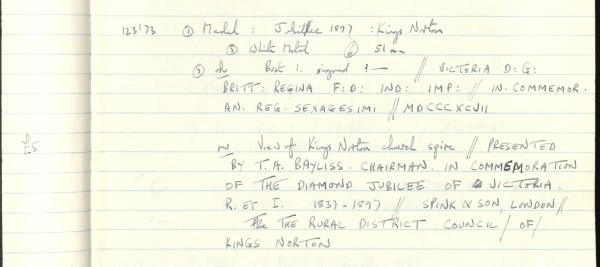 123'73 ① Medal : Jubillee 1897 : Kings Norton
③ White Metal ⑥ 51 mm
⑤ Bust l. signed ? — // VICTORIA D: G:
BRITT: REGINA F: D: IND: IMP: // IN. COMMEMOR.
AN. REG. SEXAGESIMI // MDCCCXCVII
£5 rv View of Kings Norton church spire // PRESENTED
BY T. A. BAYLISS. CHAIRMAN. IN COMMEMORATION
OF THE DIAMOND JUBILEE OF VICTORIA.
R. ET I. 1837-1897 // SPINK & SON, LONDON //
THE RURAL DISTRICT COUNCIL / OF /
KINGS NORTON